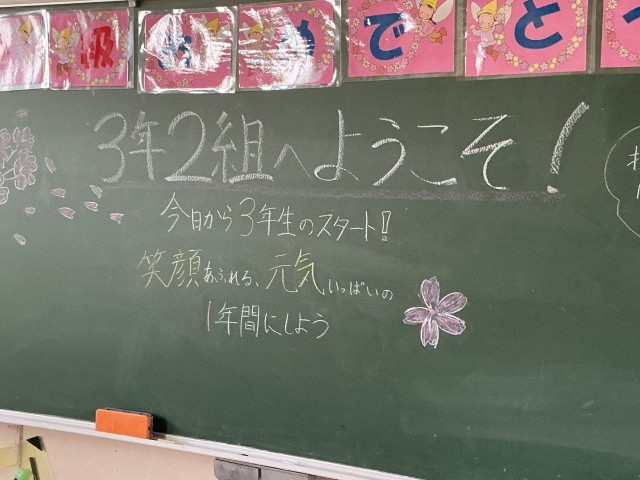 級おめでとう
3年2組へようこそ!
今日から3年生のスタート!!
笑顔あふれる、元気いっぱいの
1年間にしよう